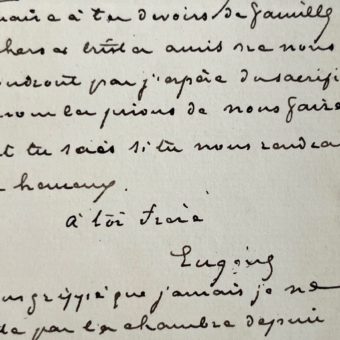 naire à tes devoirs de famille
chers et tristes amis ne nous
voudront pas j'espère du sacrifi
nous les prions de nous faire
et tu sais si tu nous rendra
heureux.
à toi frère
Eugène
grippé que jamais je ne
pas la chambre depuis